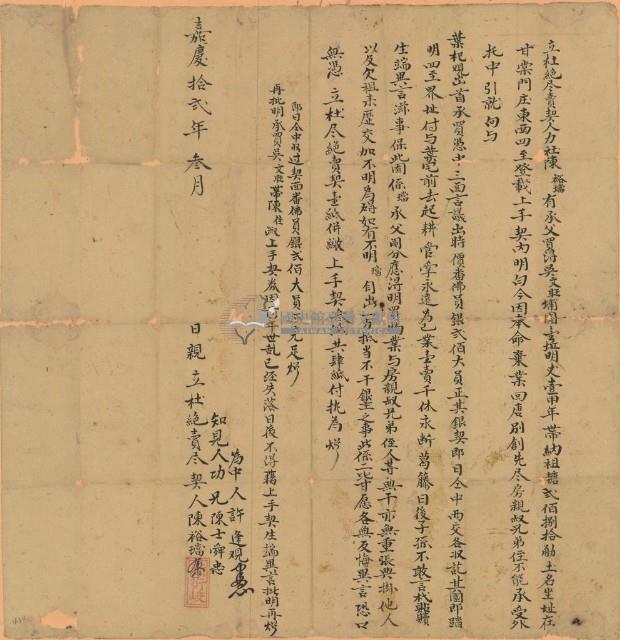 立杜絕尽賣契人力社陳裕璫有承父買得吳文旺埔園壹坵明丈壹甲年帶納租糖弍佰捌拾觔土名坐址在
甘棠門庄東西四至登載上手契內明白今因奉命棄業回唐別創先尽房親叔兄弟侄不能承受外
托中引就向与
葉杞賜出首承買憑中三面言議出時價番佛員銀弍佰大員正其銀契即日仝中兩交各收訖其園即踏
明四至界址付与葉宅前去起耕管掌永遠為己業壹賣千休永斷葛藤日後子孫不敢言找贖
生端異言滋事保此園係璫承父鬮分應得明買物業与房親叔兄弟侄人等無干亦無重張典掛他人
以及欠租来歷交加不明為碍如有不明璫自出首抵当不干銀主之事此係二比甘愿各無反悔異言恐口
無憑立杜尽絕賣契壹紙併繳上手契共肆紙付执為炤
即日仝中收过契面番佛員銀弍佰大員完足炤
再批明承買吳文旺帶陳上手契歲因年世乱已経失落日後不得藉上手契生端異言批明再炤
為中人許逢观
知見人功兄陳士舜
嘉慶拾弍年叁月 日親立杜絕賣尽契人陳裕璫